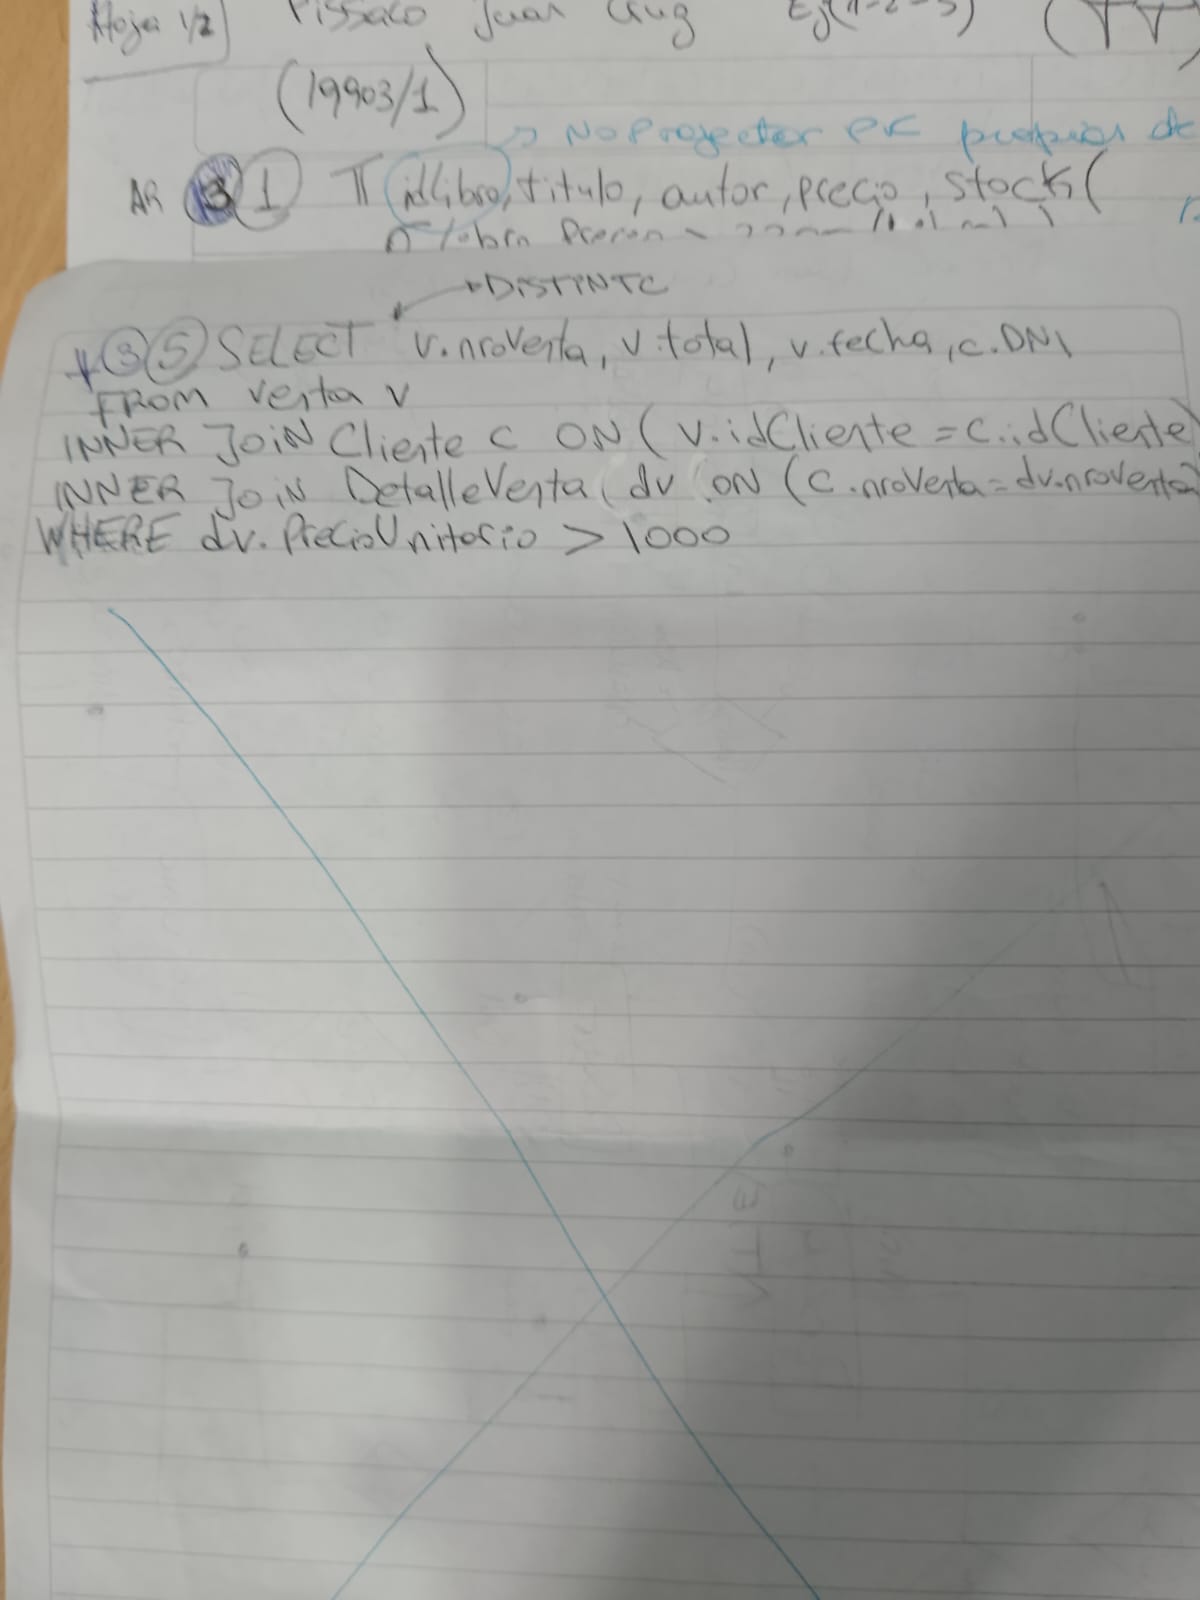 Hoja 1/2 Pissaco Juan Ej(1-2-3)
(19903/1)
→ No Proyectar PK propias de
AR 3 1 π idlibro, titulo, autor, precio, stock(
→ DISTINTC
+ 3 5 SELECT v.nroVenta, v.total, v.fecha, c.DNI
FROM venta v
INNER JOIN Cliente c ON (v.idCliente = c.idCliente)
INNER JOIN DetalleVenta dv ON (c.nroVenta = dv.nroVenta)
WHERE dv.PrecioUnitario > 1000